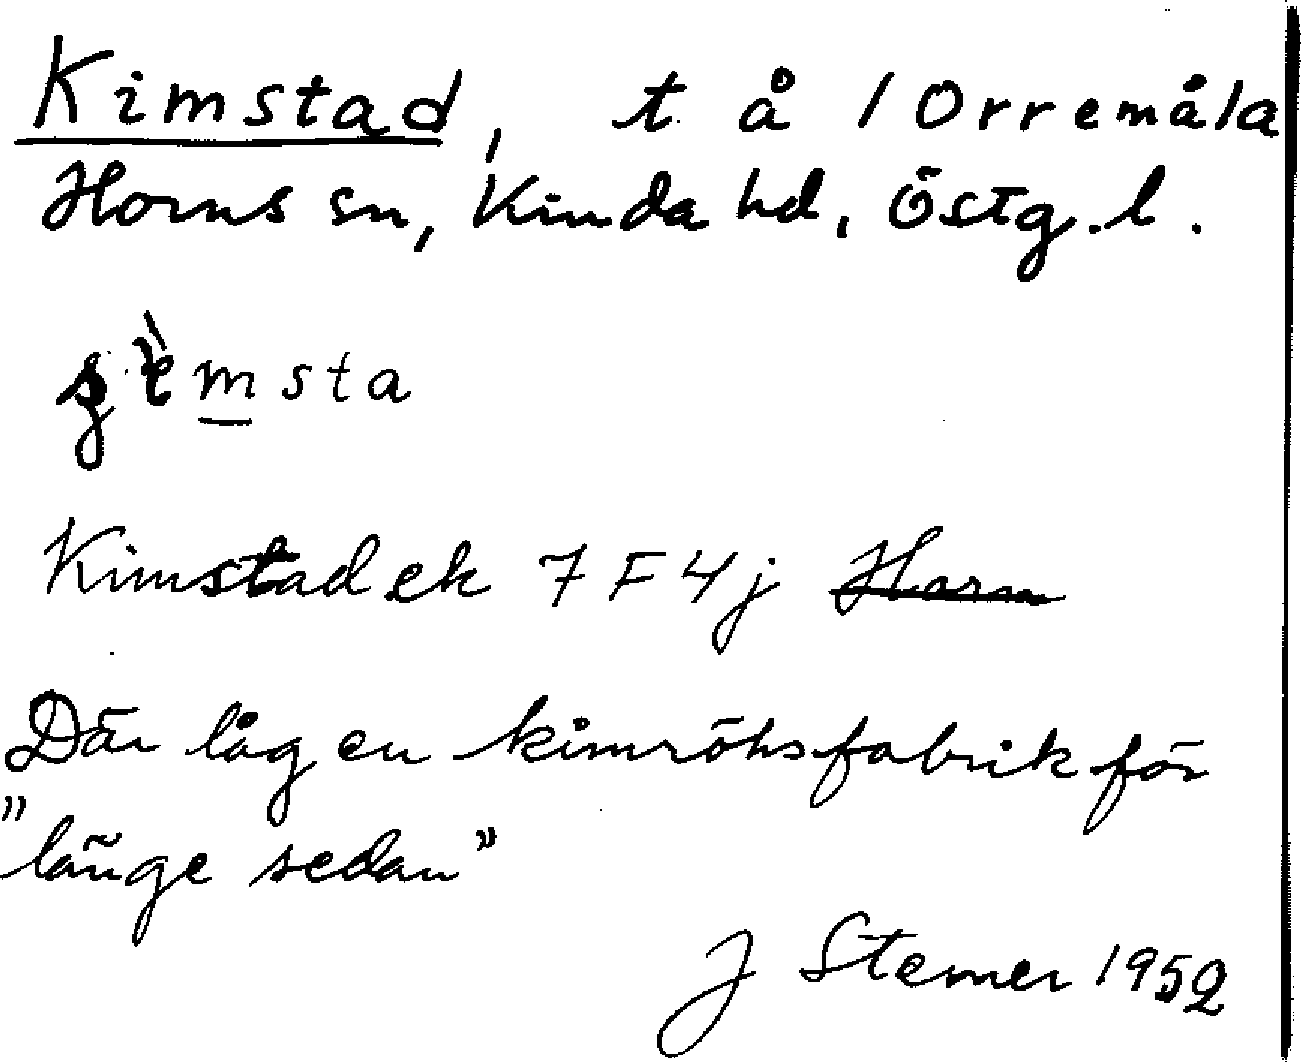 Kimstad, t å 1 Orremåla
Horns sn, Kinda hd, Östg.l.
msta
Kimstad ek 7F4j Horn
Där låg en kimröksfabrik för
"länge sedan"
J Stemer 1952